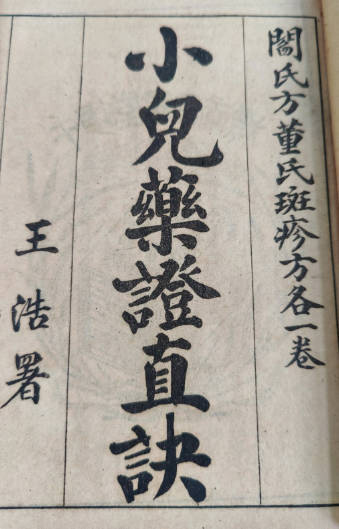 閻氏方董氏斑疹方各一卷
小兒藥證直訣
王浩署